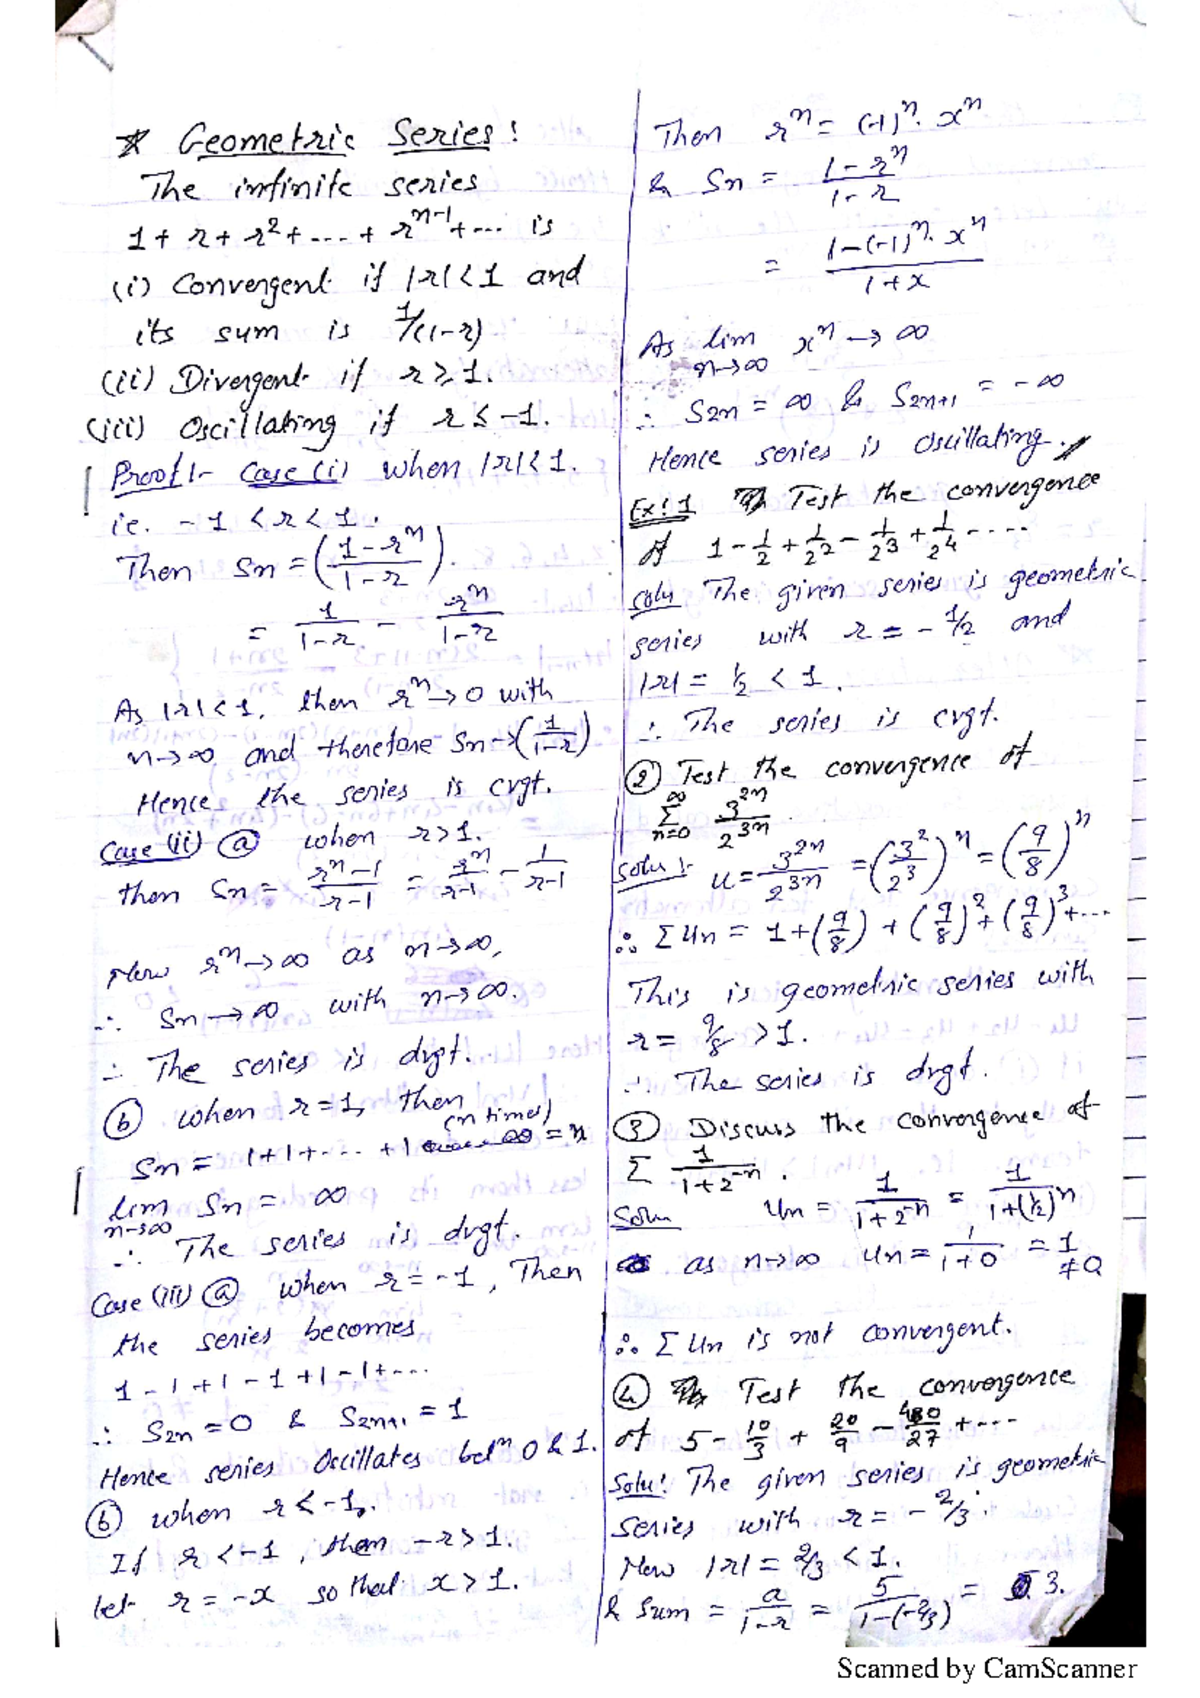 * Geometric Series:
The infinite series
1 + r + r² + ... + rⁿ⁻¹ + ... is
(i) Convergent if |r| < 1 and
its sum is 1/(1-r)
(ii) Divergent if r ≥ 1.
(iii) Oscillating if r ≤ -1.
Proof:- Case (i) when |r| < 1.
ie. -1 < r < 1.
Then Sn = ((1-rⁿ)/(1-r)).
= 1/(1-r) - rⁿ/(1-r)
As |r| < 1, then rⁿ → 0 with
n → ∞ and therefore Sn → (1/(1-r))
Hence the series is cvgt.
Case (ii) ⓐ when r > 1.
then Sn = (rⁿ-1)/(r-1) = rⁿ/(r-1) - 1/(r-1)
Now rⁿ → ∞ as n → ∞,
∴ Sn → ∞ with n → ∞.
∴ The series is drgt.
ⓑ when r = 1, then
(n times)
Sn = 1+1+ ... +1 = n
lim Sn = ∞
n→∞
∴ The series is dvgt.
Case (iii) ⓐ when r = -1, Then
the series becomes
1 - 1 + 1 - 1 + 1 - 1 + ...
∴ S2n = 0 & S2n+1 = 1
Hence series Occillates betⁿ 0 & 1.
ⓑ when r < -1,.
If r < -1, then -r > 1.
let r = -x so that x > 1.
Then rⁿ = (-1)ⁿ. xⁿ
& Sn = (1-rⁿ)/(1-r)
= (1-(-1)ⁿ. xⁿ)/(1+x)
As lim xⁿ → ∞
n→∞
∴ S2n = ∞ & S2n+1 = -∞
Hence series is Oscillating.
Ex: 1 Test the convergence
of 1 - 1/2 + 1/2² - 1/2³ + 1/2⁴ - ....
Solu The given series is geometric
series with r = -1/2 and
|r| = 1/2 < 1.
∴ The series is cvgt.
② Test the convergence of
∞
Σ 3²ⁿ/2³ⁿ.
n=0
Solu:- u = 3²ⁿ/2³ⁿ = (3²/2³)ⁿ = (9/8)ⁿ
∴ ΣUn = 1 + (9/8) + (9/8)² + (9/8)³ + ...
This is geometric series with
r = 9/8 > 1.
∴ The series is drgt.
③ Discuss the convergence of
Σ 1/(1+2⁻ⁿ).
Solu Un = 1/(1+2⁻ⁿ) = 1/(1+(1/2)ⁿ)
as n→∞ Un = 1/(1+0) = 1 ≠ 0
∴ ΣUn is not convergent.
④ Test the convergence
of 5 - 10/3 + 20/9 - 40/27 + ...
Solu: The given series is geometric
series with r = -2/3.
Now |r| = 2/3 < 1.
& Sum = a/(1-r) = 5/(1-(-2/3)) = 3.
Scanned by CamScanner